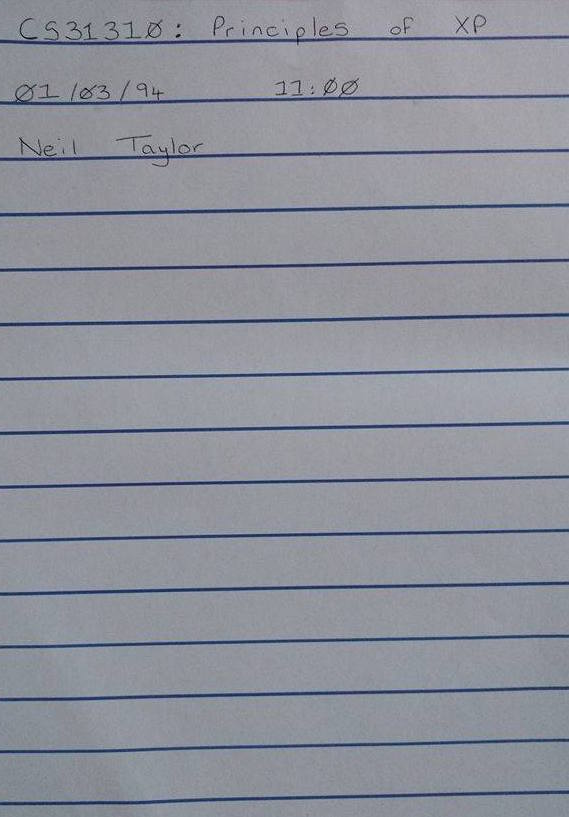 CS31310: Principles of XP
01/03/94 11:00
Neil Taylor